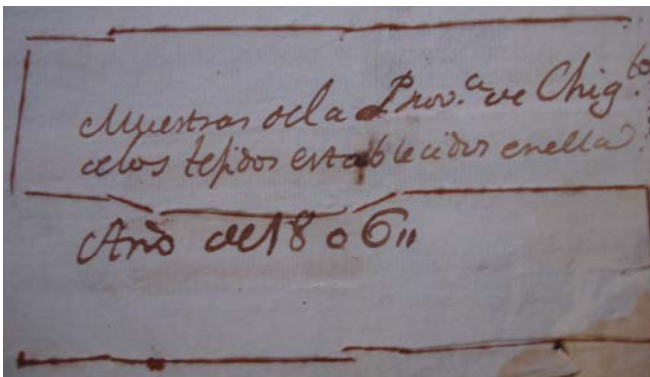 Muestras dela Prov.ª de Chiq.tos
delos tejidos establecidos enella.
Año de 1806,,